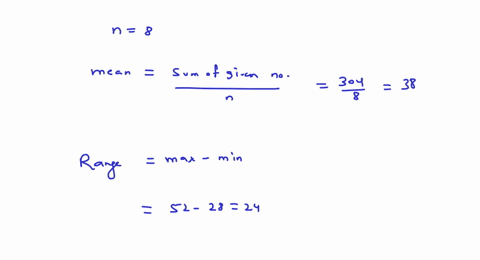 n = 8
mean = Sum of given no. / n = 304/8 = 38
Range = max - min
= 52 - 28 = 24